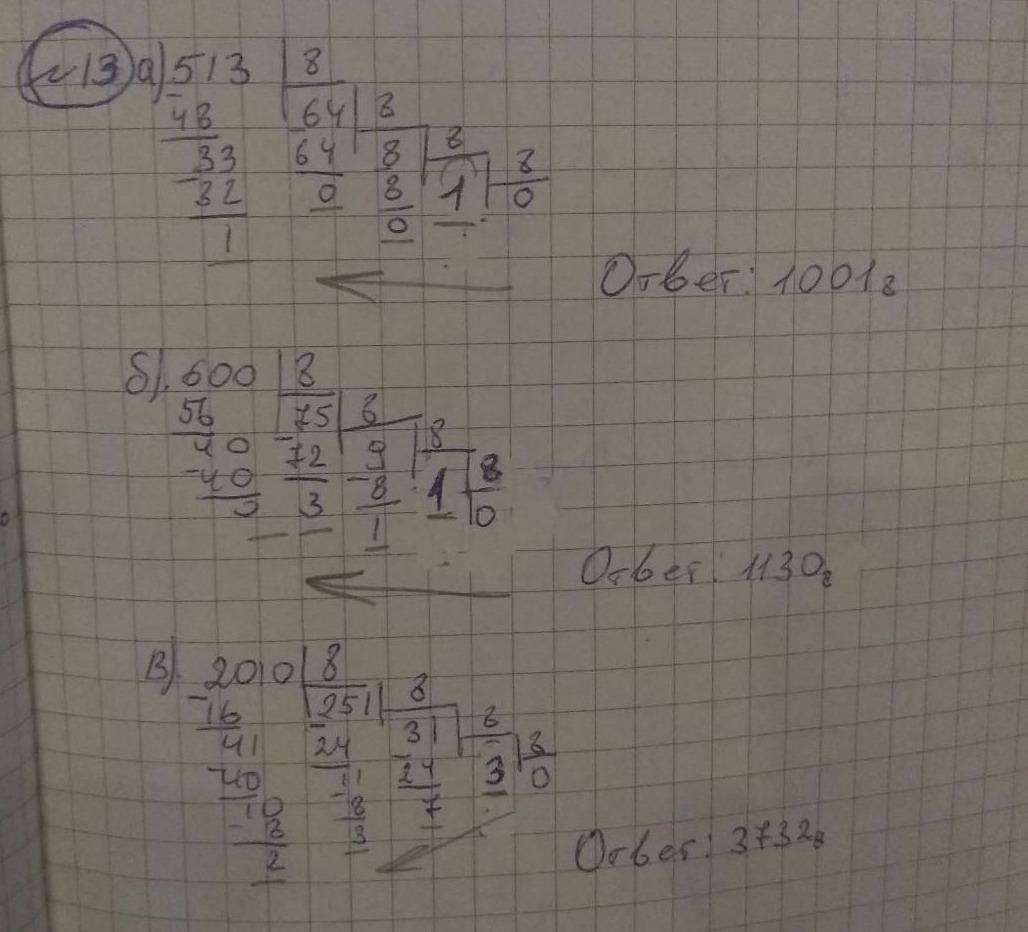 №13 а) 513 | 8
48 64 | 8
33 64 8 | 8
32 0 8 1 | 8
1 0 0
Ответ: 1001₈
б). 600 | 8
56 75 | 8
40 72 9 | 8
40 3 8 1 | 8
0 1 0
Ответ: 1130₈
В). 2010 | 8
16 251 | 8
41 24 31 | 8
40 11 24 3 | 8
10 8 7 0
8 3
2
Ответ: 3732₈